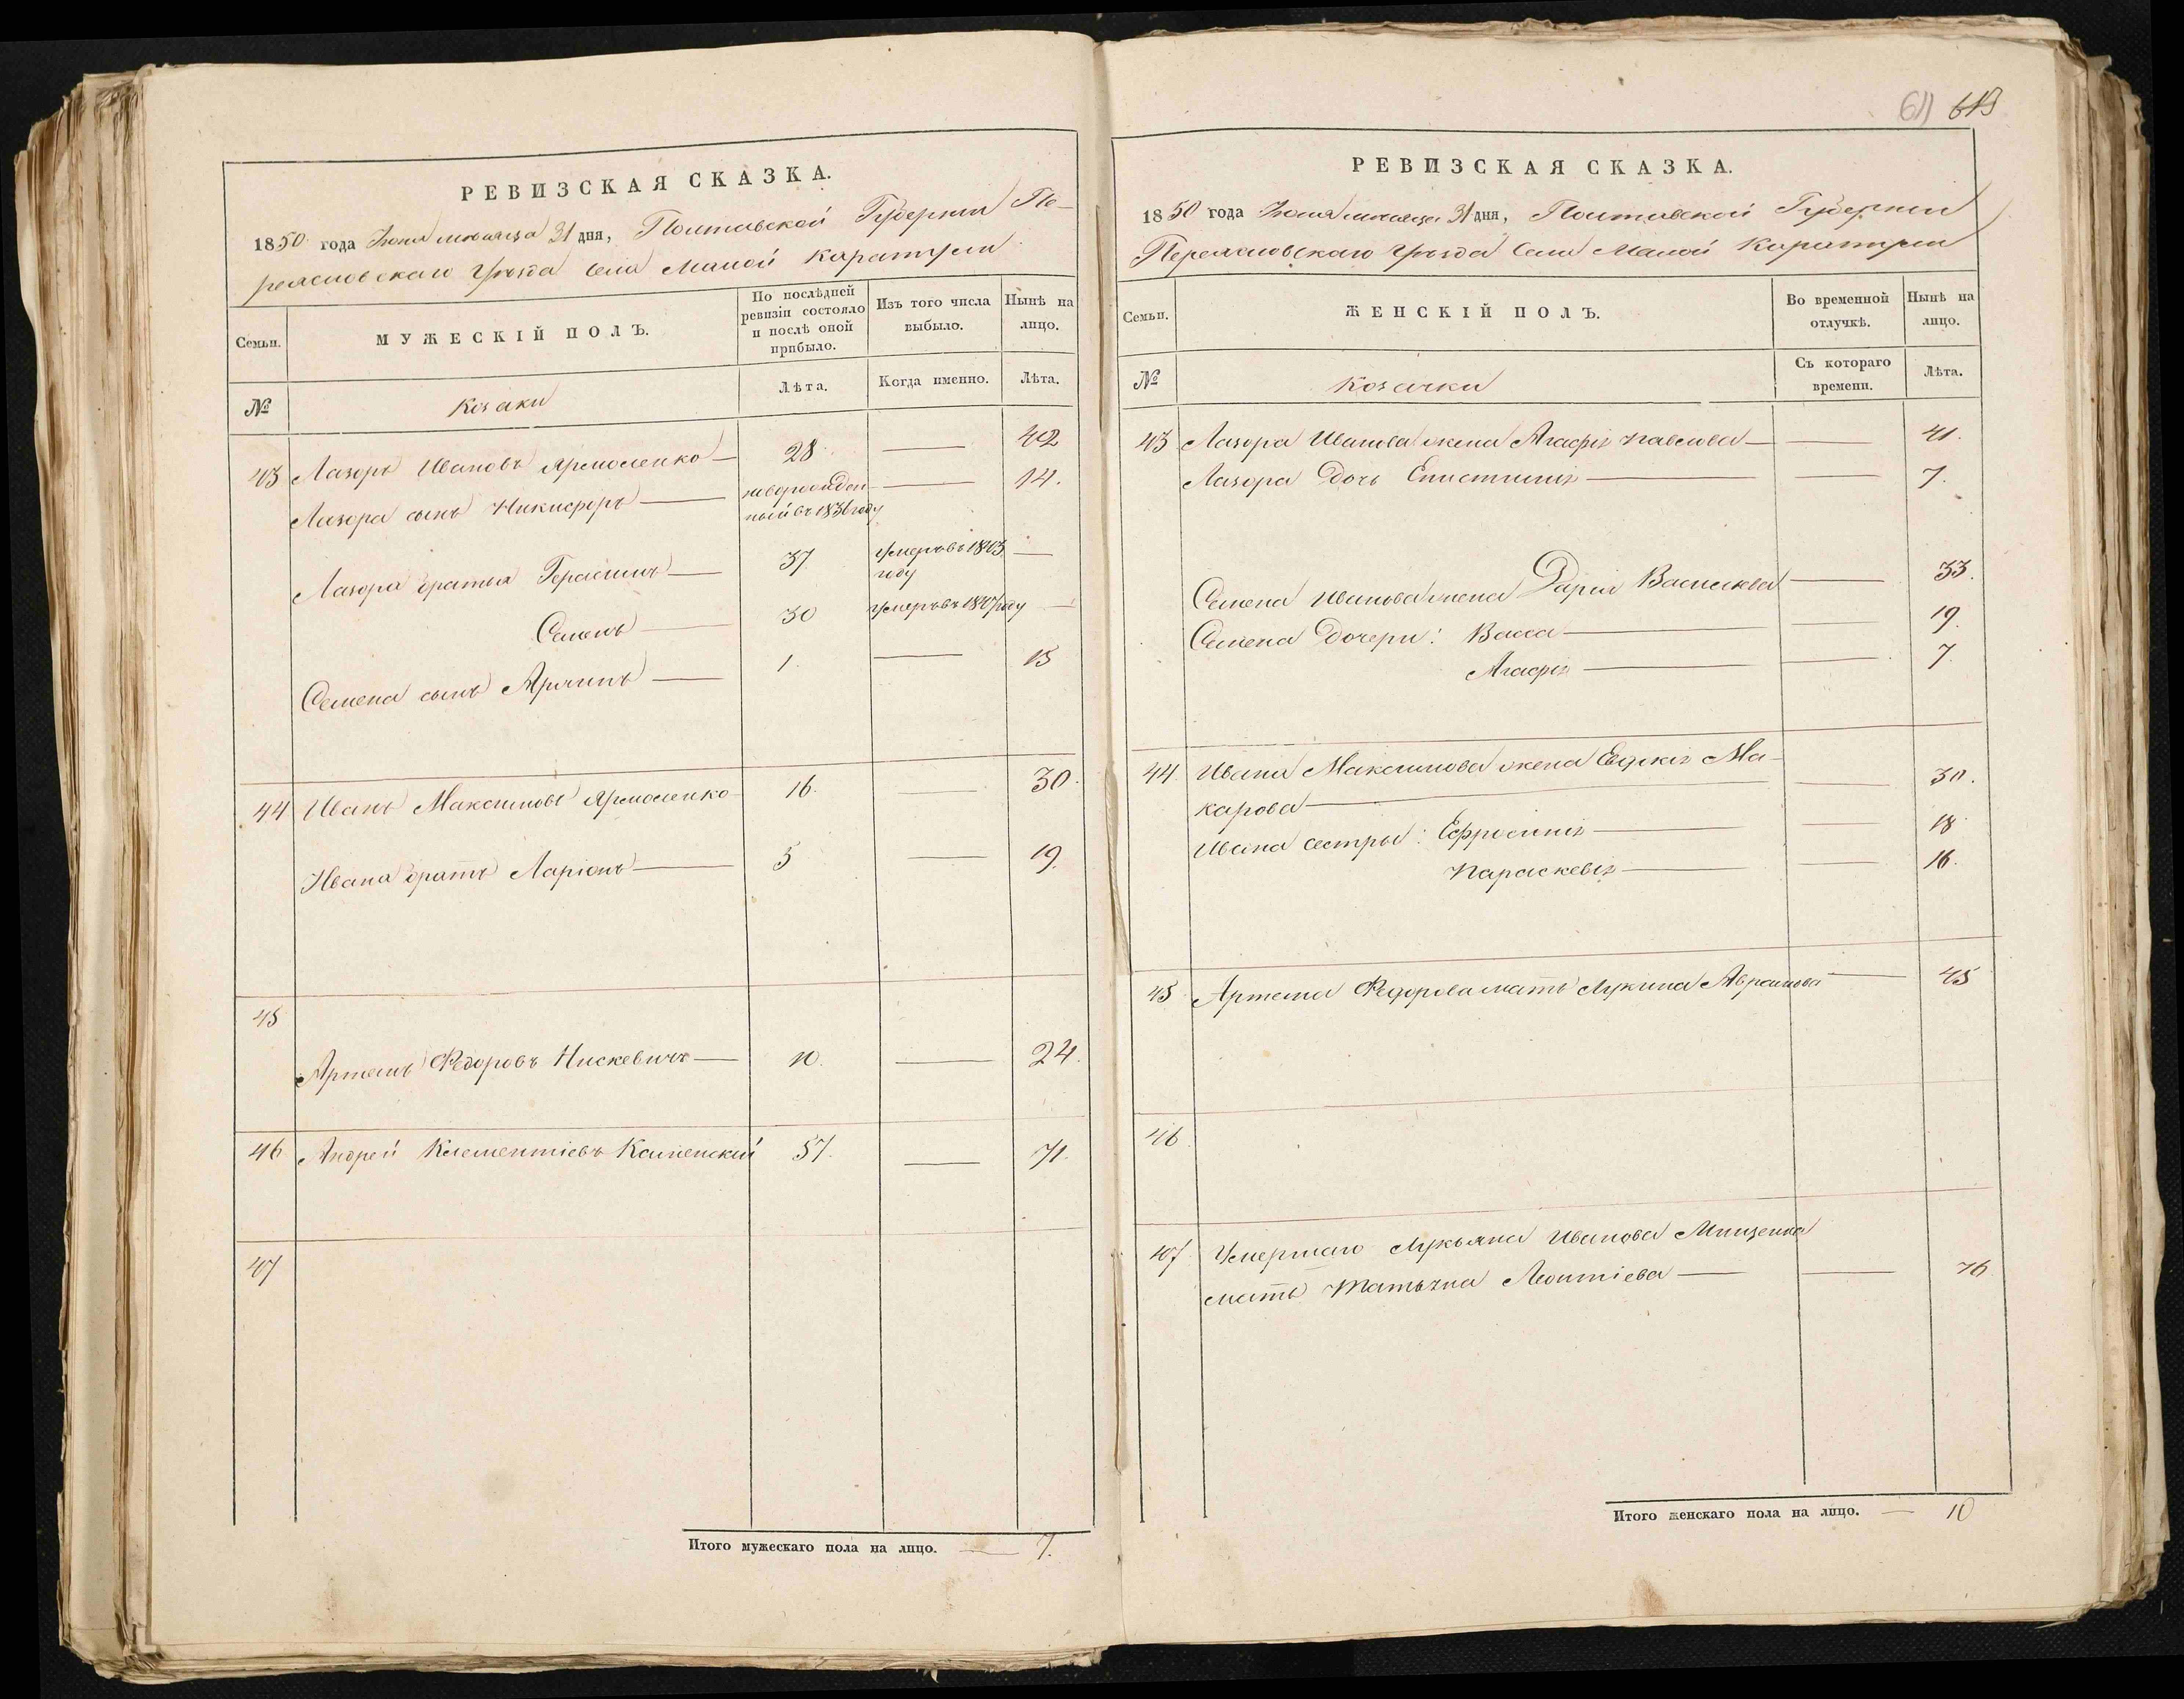 611 613
РЕВИЗСКАЯ СКАЗКА.
1850 года Июня месяца 31 дня, Полтавской Губернии Пе-
реясловскаго Уѣзда Села Малой Каратули
Семьи.
МУЖЕСКІЙ ПОЛЪ.
По послѣдней ревизіи состояло и послѣ оной прибыло.
Изъ того числа выбыло.
Нынѣ на лицо.
№
Козаки
Лѣта.
Когда именно.
Лѣта.
43 Лазоръ Ивановъ Ярмоленко — 28 — 42
Лазора сынъ Никифоръ — — 14.
ный въ 1836 году
Лазора братья Герасимъ — 37 Умеръ въ 1843 году —
Семенъ — 30 умеръ въ 1847 году —
Семена сынъ — 1. — 15
44 Иванъ Максимовъ Ярмоленко 16. — 30.
Ивана братъ Ларіонъ — 5 — 19.
45
Артемъ Федоровъ Нискевичъ — 10. — 24.
46 Андрей Клементіевъ 57. — 71.
47
Итого мужескаго пола на лицо. — 7.
РЕВИЗСКАЯ СКАЗКА.
1850 года Июня месяца 31 дня, Полтавской Губернии
Переясловскаго Уѣзда Села Малой Каратули
Семьи.
ЖЕНСКІЙ ПОЛЪ.
Во временной отлучкѣ.
Нынѣ на лицо.
№
Козачки
Съ котораго времени.
Лѣта.
43 Лазора Иванова жена Агафія Павлова — — 41.
Лазора дочь Епистинія — — 7.
Семена Иванова жена Дарія Васильева — 33.
Семена дочери: Васса — — 19.
Агафія — — 7.
44 Ивана Максимова жена Евдокія Ма-
карова — — 30.
Ивана сестры: Ефросинія — — 18
Параскевія — — 16.
45 Артема Федорова мать Лукина Аврамова — 45
46
47 Умершаго Лукьяна Иванова Мищенка
мать Татьяна Леонтіева — — 76
Итого женскаго пола на лицо. — 10